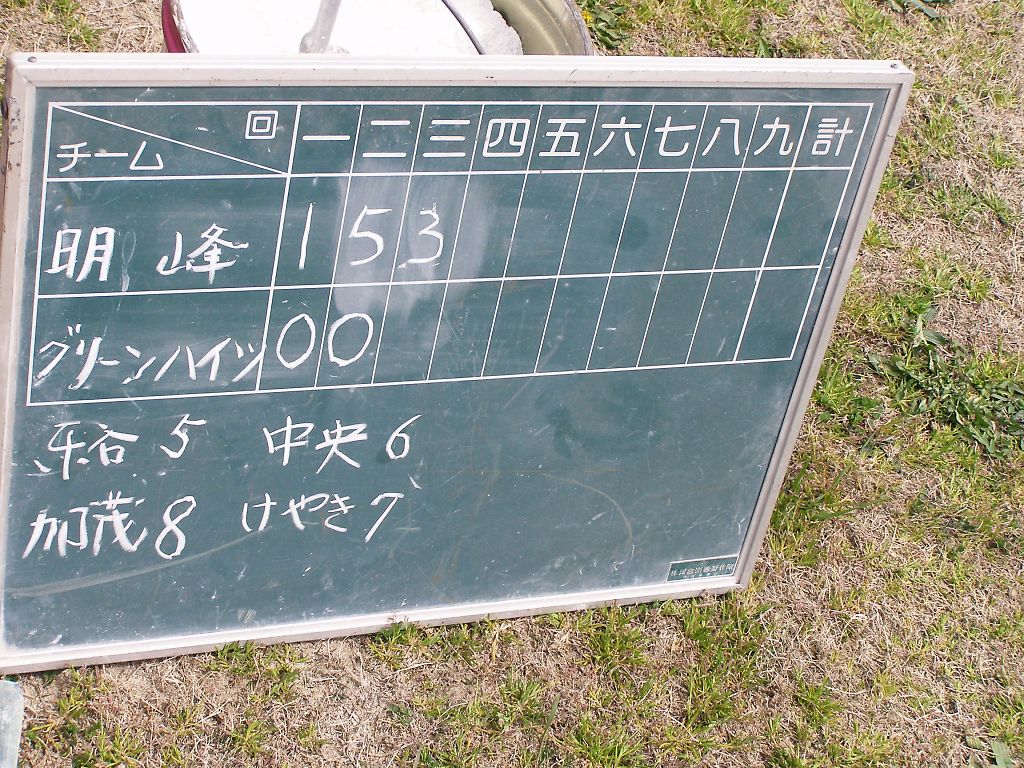 回 一 二 三 四 五 六 七 八 九 計
チーム
明峰 1 5 3
グリーンハイツ 0 0
平谷 5 中央 6
加茂 8 けやき 7